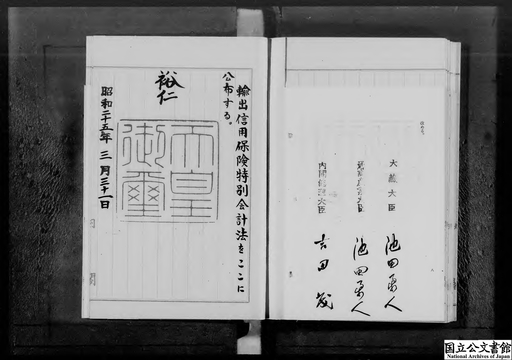 輸出信用保険特別会計法をここに
公布する。
裕仁
天皇
御璽
昭和二十五年 三月三十一日
大蔵大臣 池田勇人
池田勇人
内閣総理大臣 吉田茂
国立公文書館
National Archives of Japan